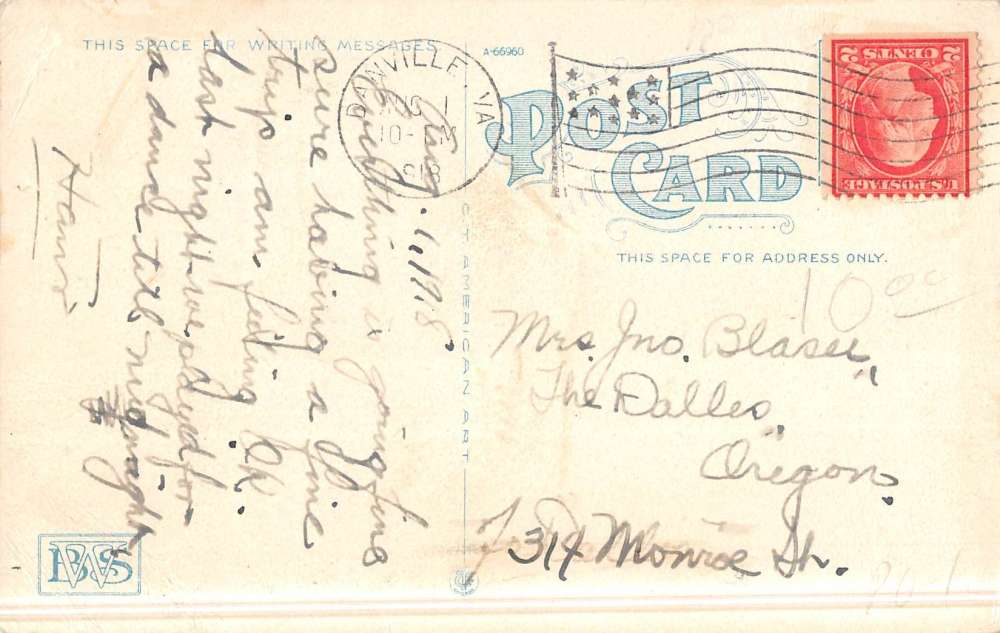 THIS SPACE FOR WRITING MESSAGES
A-66960
POST CARD
THIS SPACE FOR ADDRESS ONLY.
DANVILLE VA
AUG 1
10-
1918
2 CENTS 2
U.S. POSTAGE
Aug. 1, 1918.
Everything is going fine
sure having a fine
trip am feeling OK.
Last night we played for
a dance till midnight
10 00
Mrs. Jno. Blaser,
The Dalles,
Oregon.
314 Monroe St.
C.T. AMERICAN ART
BWS